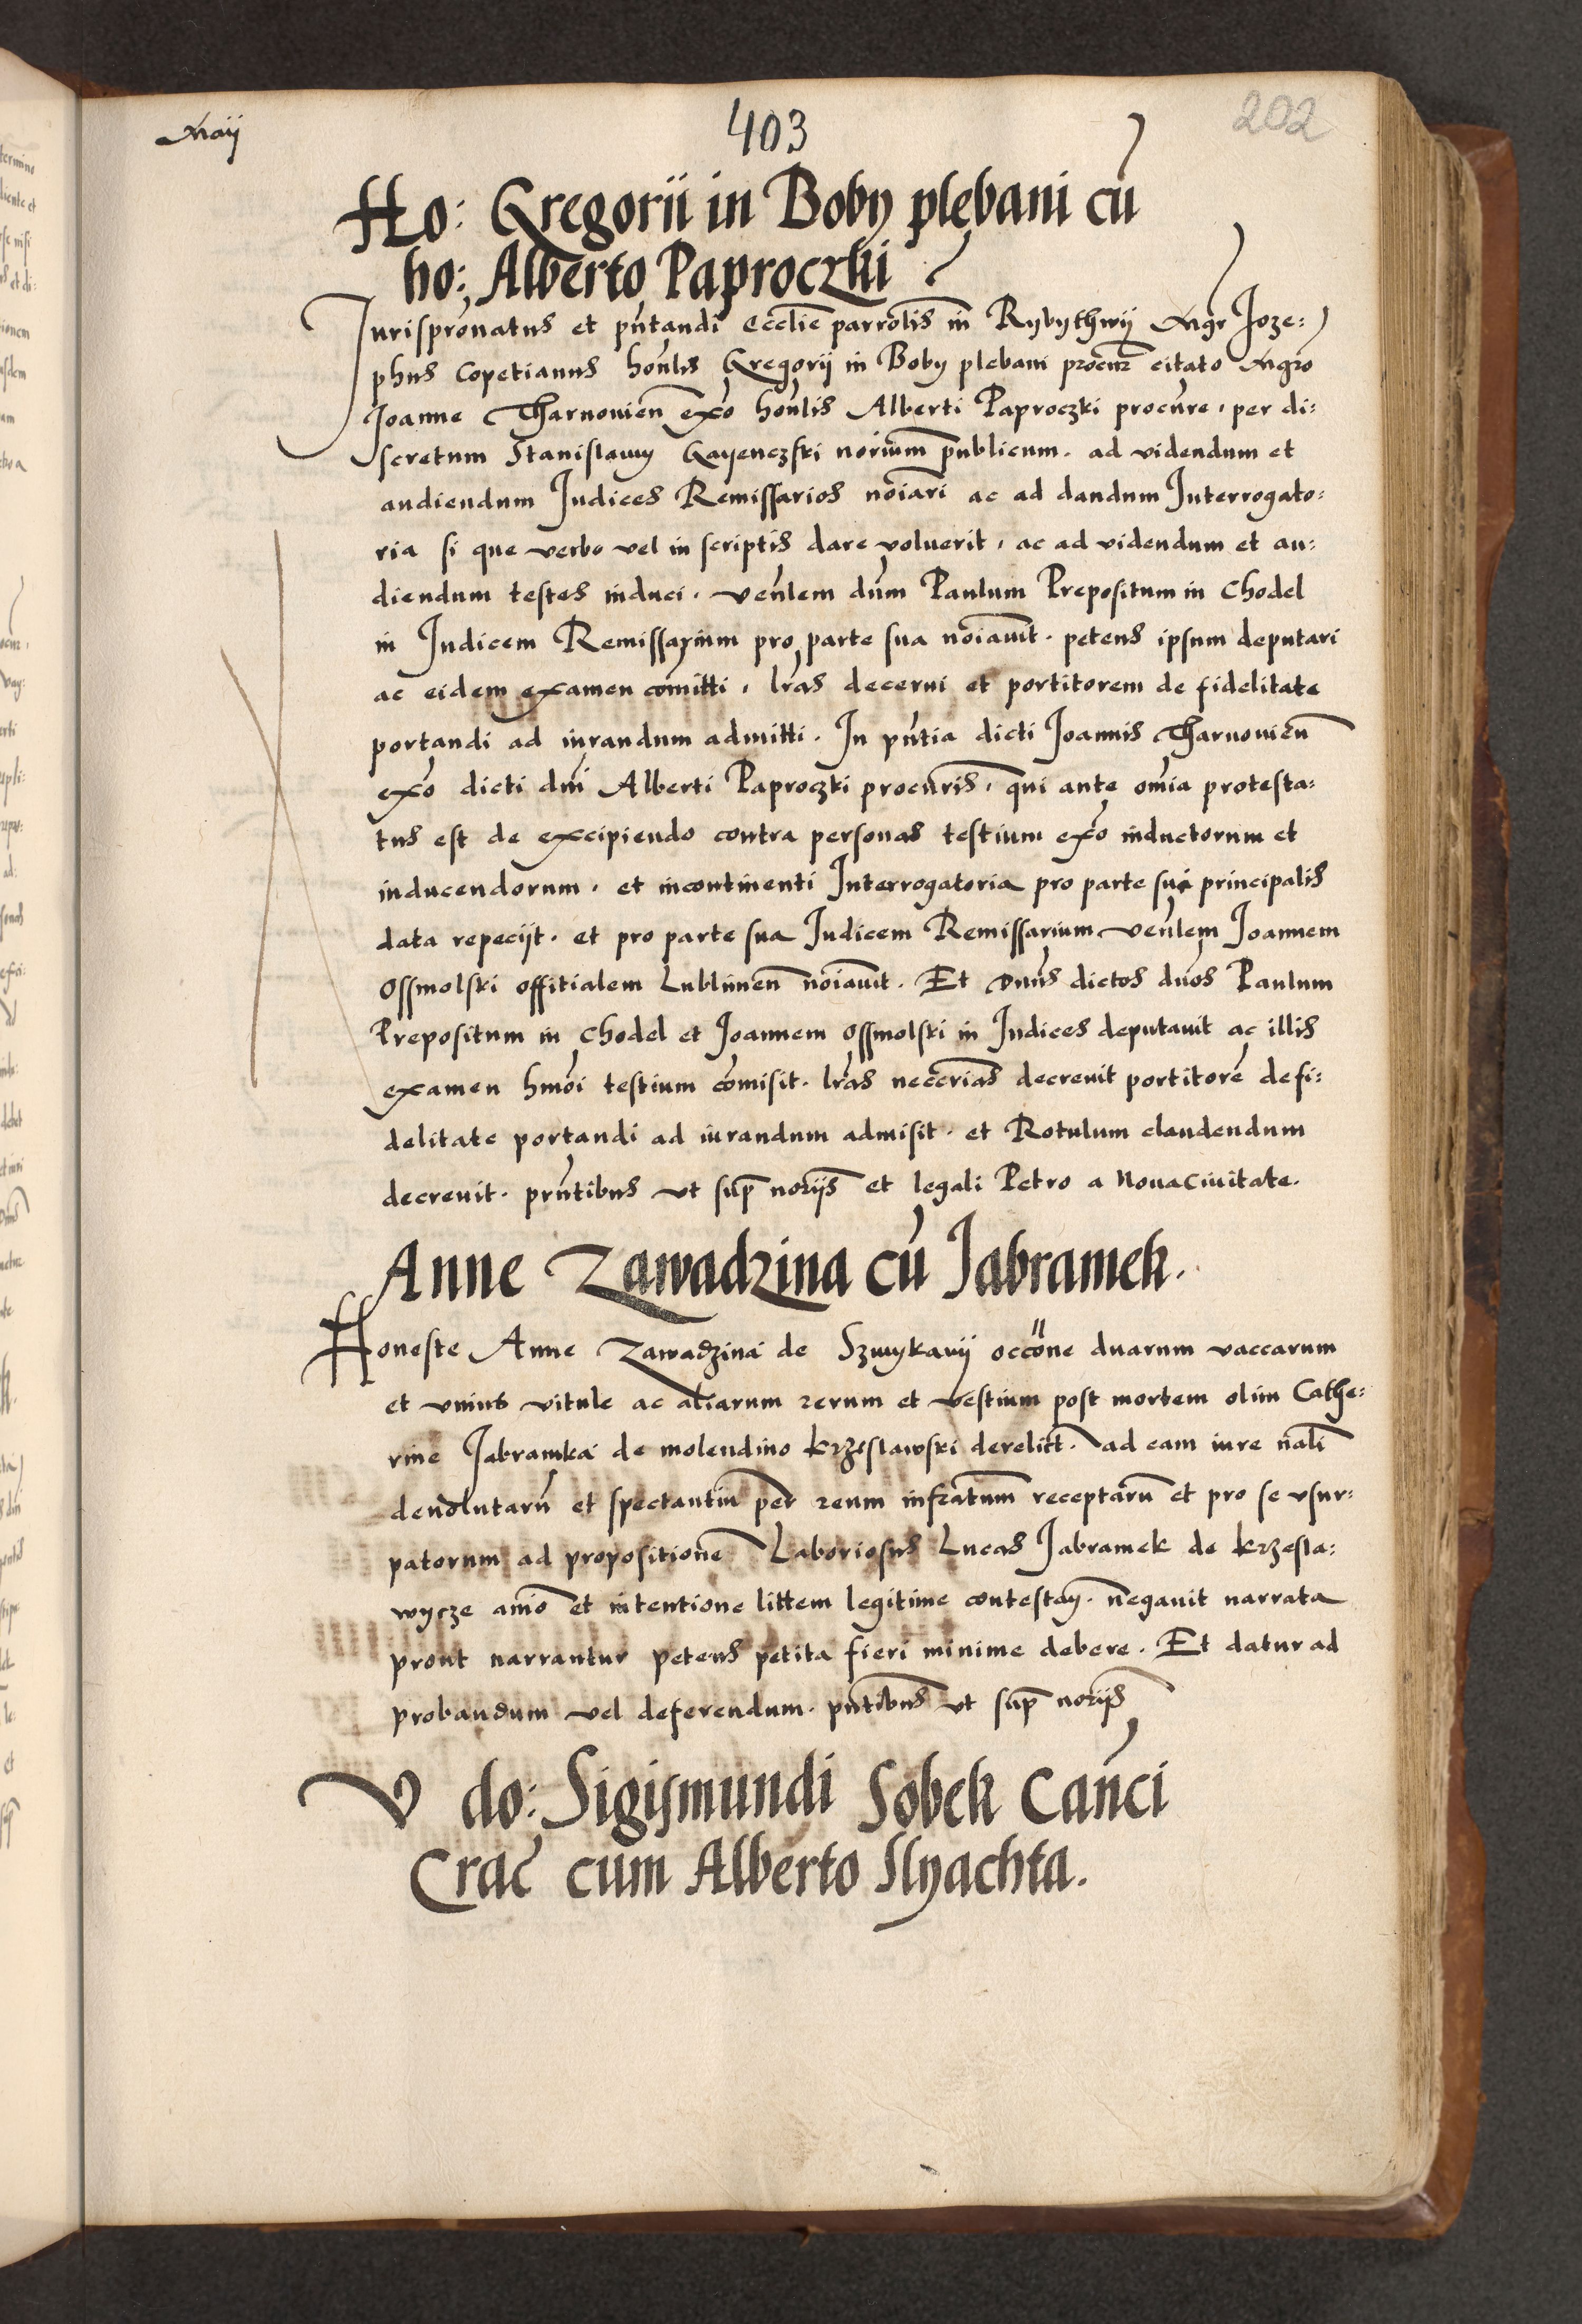 Maij
403
202
Ho: Gregorii in Boby plebani cū
ho: Alberto Paproczki
Jurispronatus et pñtandi Ecclie parrolis in Rybythwij Mgr Joze:
phus Copetianus honlis Gregorij in Boby plebani procur citato Mgro
Joanne Tharnovień exo honlis Alberti Paproczki procure, per di:
scretum Stanislaum Gayenczski norium publicum. ad videndum et
audiendum Judices Remissarios noiari ac ad dandum Interrogato:
ria si que verbo vel in scriptis dare voluerit, ac ad videndum et au:
diendum testes induci. venlem dum Paulum Prepositum in Chodel
in Judicem Remissarium pro parte sua noiavit. petens ipsum deputari
ac eidem examen comitti, lras decerni et portitorem de fidelitate
portandi ad iurandum admitti. In pñtia dicti Joannis Tharnovień
exo dicti dni Alberti Paproczki procuris, qui ante omia protesta:
tus est de excipiendo contra personas testium exo inductorum et
inducendorum, et incontinenti Interrogatoria pro parte sui principalis
data repecijt. et pro parte sua Judicem Remissarium venlem Joannem
Ossmolski offitialem Lublineñ noiavit. Et Dnus dictos dnos Paulum
Prepositum in Chodel et Joannem Ossmolski in Judices deputavit ac illis
examen hmoi testium comisit. lras neccrias decrevit portitorē de fi:
delitate portandi ad iurandum admisit. et Rotulum claudendum
decrevit. prñtibus ut sup norijs et legali Petro a Nova Civitate.
Anne Zawadzina cū Jabramek.
Honeste Anne Zawadzina de Szmykavij occõne duarum vaccarum
et unius vitule ac aliarum rerum et vestium post mortem olim Cathe:
rine Jabramka de molendino krzeslawski derelict. ad eam iure nali
devolutarū et spectantiū per reum infratum receptarū et pro se usur:
patorum ad propositionē Laboriosus Lucas Jabramek de krzesla:
wycze anio et intentione littem legitime contestan. negavit narrata
prout narrantur petens petita fieri minime debere. Et datur ad
probandum vel deferendum. pñtibus ut sup norijs
V do: Sigismundi Sobek Cañci
Crac cum Alberto Slyachta.